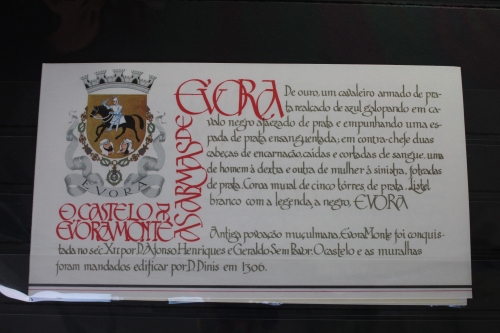 EVORA
O CASTELO DE
EVORAMONTE
AS ARMAS DE
EVORA
De ouro, um cavaleiro armado de pra-
ta realçado de azul, galopando em ca-
valo negro ajaezado de prata e empunhando uma es-
pada de prata ensanguentada; em contra-chefe duas
cabeças de encarnação, caídas e cortadas de sangue, uma
de homem à dextra e outra de mulher à sinistra, toucadas
de prata. Coroa mural de cinco tôrres de prata. Listel
branco com a legenda, a negro, EVORA
Antiga povoação muçulmana, EvoraMonte foi conquis-
tada no séc XII por D. Afonso Henriques e Geraldo Sem Pavor. O castelo e as muralhas
foram mandados edificar por D. Dinis em 1306.